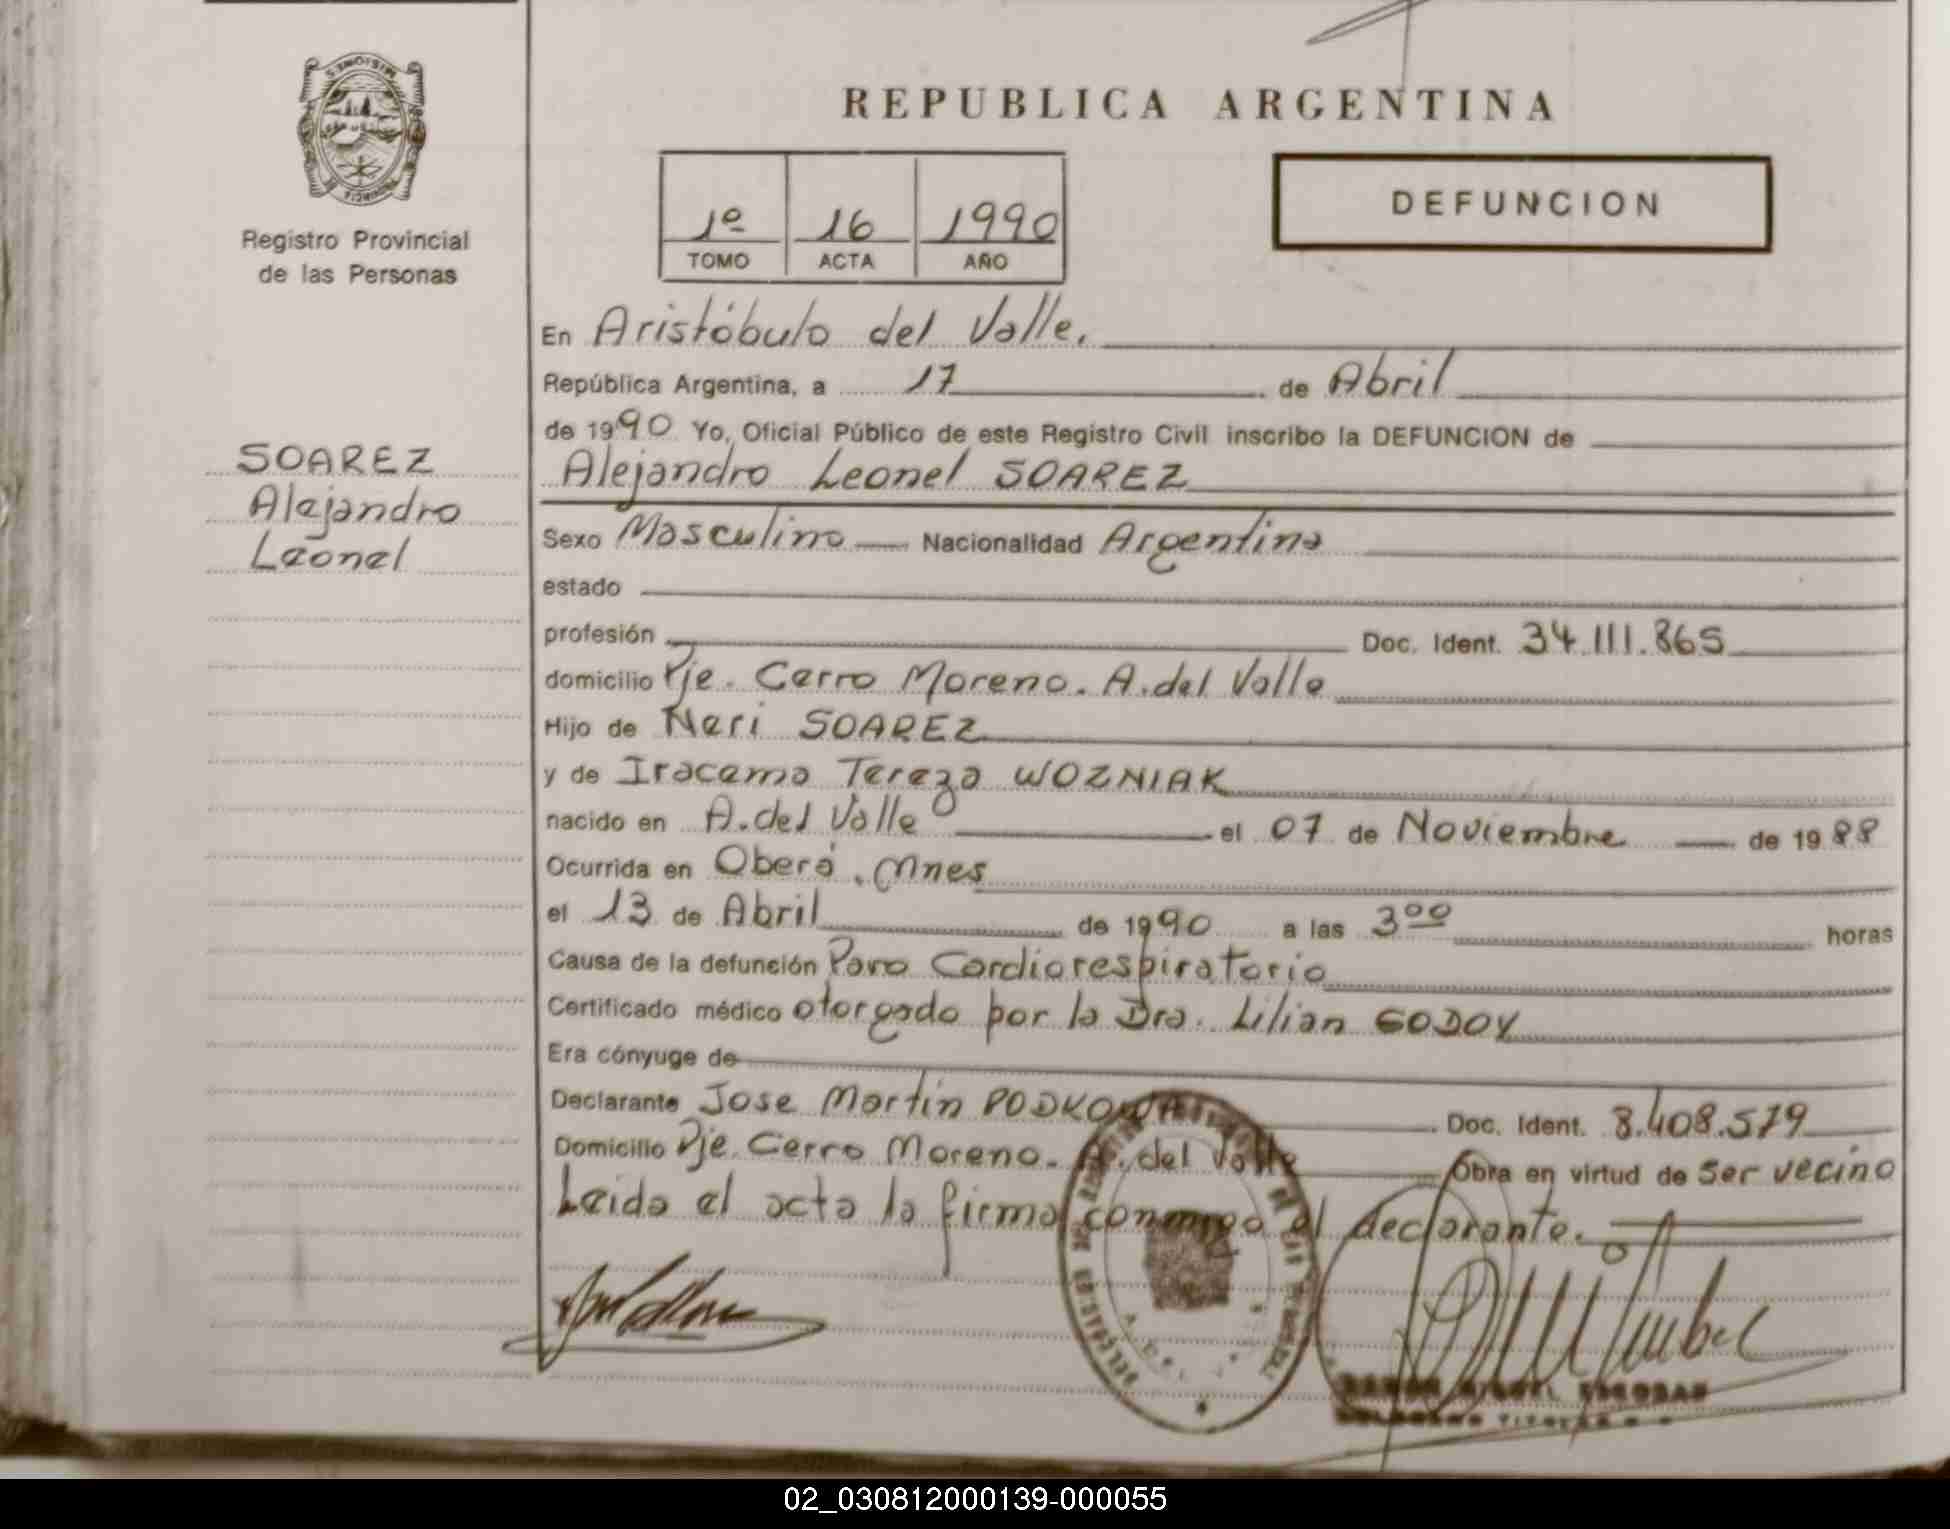 MISIONES
PROVINCIA DE
Registro Provincial
de las Personas
SOAREZ
Alejandro
Leonel
REPUBLICA ARGENTINA
1º 16 1990
TOMO ACTA AÑO
DEFUNCION
En Aristóbulo del Valle.
República Argentina, a 17 de Abril
de 1990 Yo, Oficial Público de este Registro Civil inscribo la DEFUNCION de
Alejandro Leonel SOAREZ
Sexo Masculino Nacionalidad Argentina
estado
profesión Doc. Ident. 34.111.865
domicilio Pje. Cerro Moreno. A.del Valle
Hijo de Neri SOAREZ
y de Iracema Tereza WOZNIAK
nacido en A.del Valle el 07 de Noviembre de 1988
Ocurrida en Oberá. Mnes
el 13 de Abril de 1990 a las 3ºº horas
Causa de la defunción Paro Cardiorespiratorio
Certificado médico otorgado por la Dra. Lilian GODOY
Era cónyuge de
Declarante Jose Martín PODKOWA Doc. Ident. 8.408.579
Domicilio Pje. Cerro Moreno. A. del Valle Obra en virtud de Ser vecino
Leida el acta la firma conmigo el declarante.
RAMON MIGUEL ESCOBAR
DELEGADO TITULAR
02_030812000139-000055